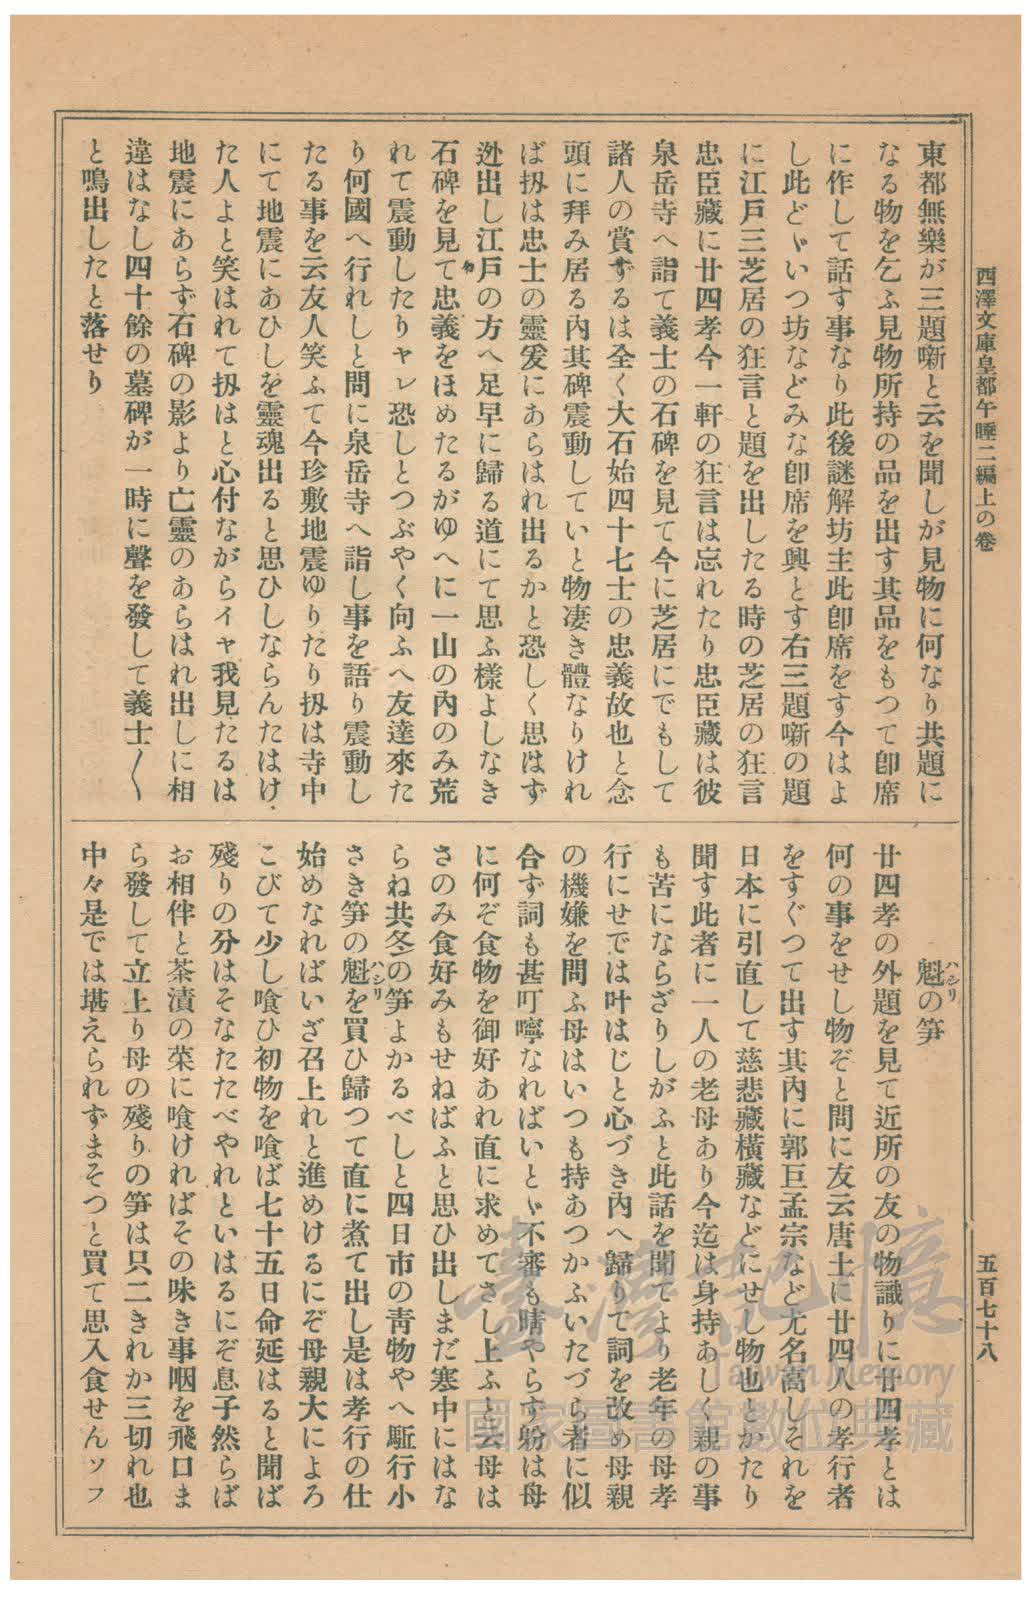 西澤文庫皇都午睡二編上の卷
五百七十八
東都無樂が三題噺と云を聞しが見物に何なり共題に
なる物を乞ふ見物所持の品を出す其品をもつて卽席
に作して話す事なり此後謎解坊主此卽席をす今はよ
し此どゞいつ坊などみな卽席を興とす右三題噺の題
に江戸三芝居の狂言と題を出したる時の芝居の狂言
忠臣藏に廿四孝今一軒の狂言は忘れたり忠臣藏は彼
泉岳寺へ詣て義士の石碑を見て今に芝居にでもして
諸人の賞ずるは全く大石始四十七士の忠義故也と念
頭に拜み居る內其碑震動していと物凄き體なりけれ
ば扨は忠士の靈爰にあらはれ出るかと恐しく思はず
迯出し江戸の方へ足早に歸る道にて思ふ樣よしなき
石碑を見て忠義をほめたるがゆへに一山の內のみ荒
れて震動したりヤレ恐しとつぶやく向ふへ友達來た
り何國へ行れしと問に泉岳寺へ詣し事を語り震動し
たる事を云友人笑ふて今珍敷地震ゆりたり扨は寺中
にて地震にあひしを靈魂出ると思ひしならんたはけ
た人よと笑はれて扨はと心付ながらイヤ我見たるは
地震にあらず石碑の影より亡靈のあらはれ出しに相
違はなし四十餘の墓碑が一時に聲を發して義士〳〵
と鳴出したと落せり
魁の筍
ハシリ
廿四孝の外題を見て近所の友の物識りに廿四孝とは
何の事をせし物ぞと問に友云唐土に廿四人の孝行者
をすぐつて出す其內に郭巨孟宗など尤名高しそれを
日本に引直して慈悲藏橫藏などにせし物也とかたり
聞す此者に一人の老母あり今迄は身持あしく親の事
も苦にならざりしがふと此話を聞てより老年の母孝
行にせでは叶はじと心づき內へ歸りて詞を改め母親
の機嫌を問ふ母はいつも持あつかふいたづら者に似
合ず詞も甚叮嚀なればいとゞ不審も晴やらず躮は母
に何ぞ食物を御好あれ直に求めてさし上ふと云母は
さのみ食好みもせねばふと思ひ出しまだ寒中にはな
らね共冬の筍よかるべしと四日市の靑物やへ駈行小
さき筍の魁を買ひ歸つて直に煮て出し是は孝行の仕
ハシリ
始めなればいざ召上れと進めけるにぞ母親大によろ
こびて少し喰ひ初物を喰ば七十五日命延はると聞ば
殘りの分はそなたたべやれといはるにぞ息子然らば
お相伴と茶漬の菜に喰ければその味き事咽を飛口ま
ら發して立上り母の殘りの筍は只二きれか三切れ也
中々是では堪えられずまそつと買て思入食せんソフ
臺灣記憶
Taiwan Memory
國家圖書館數位典藏